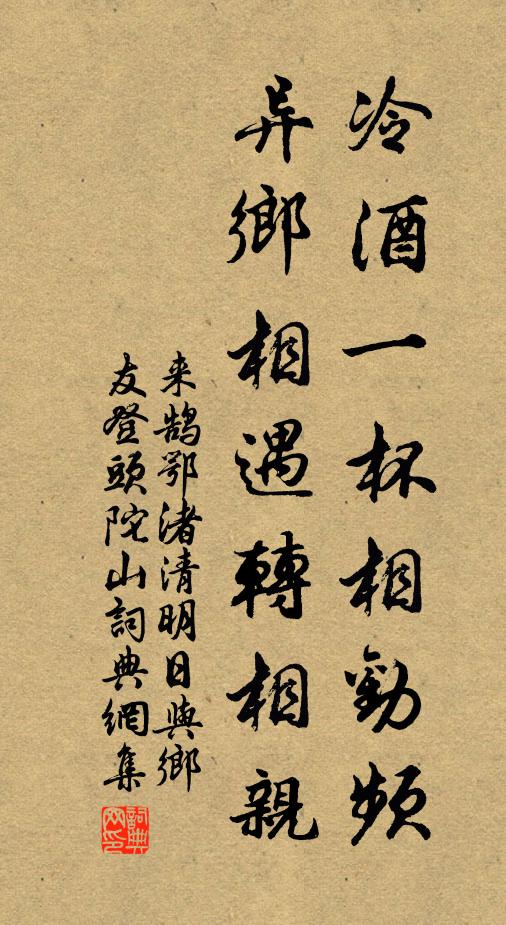 冷酒一杯相勸頻
异鄉相遇轉相親
来鵠鄂渚清明日與鄉
友登頭陀山詞典網集
詞典网印